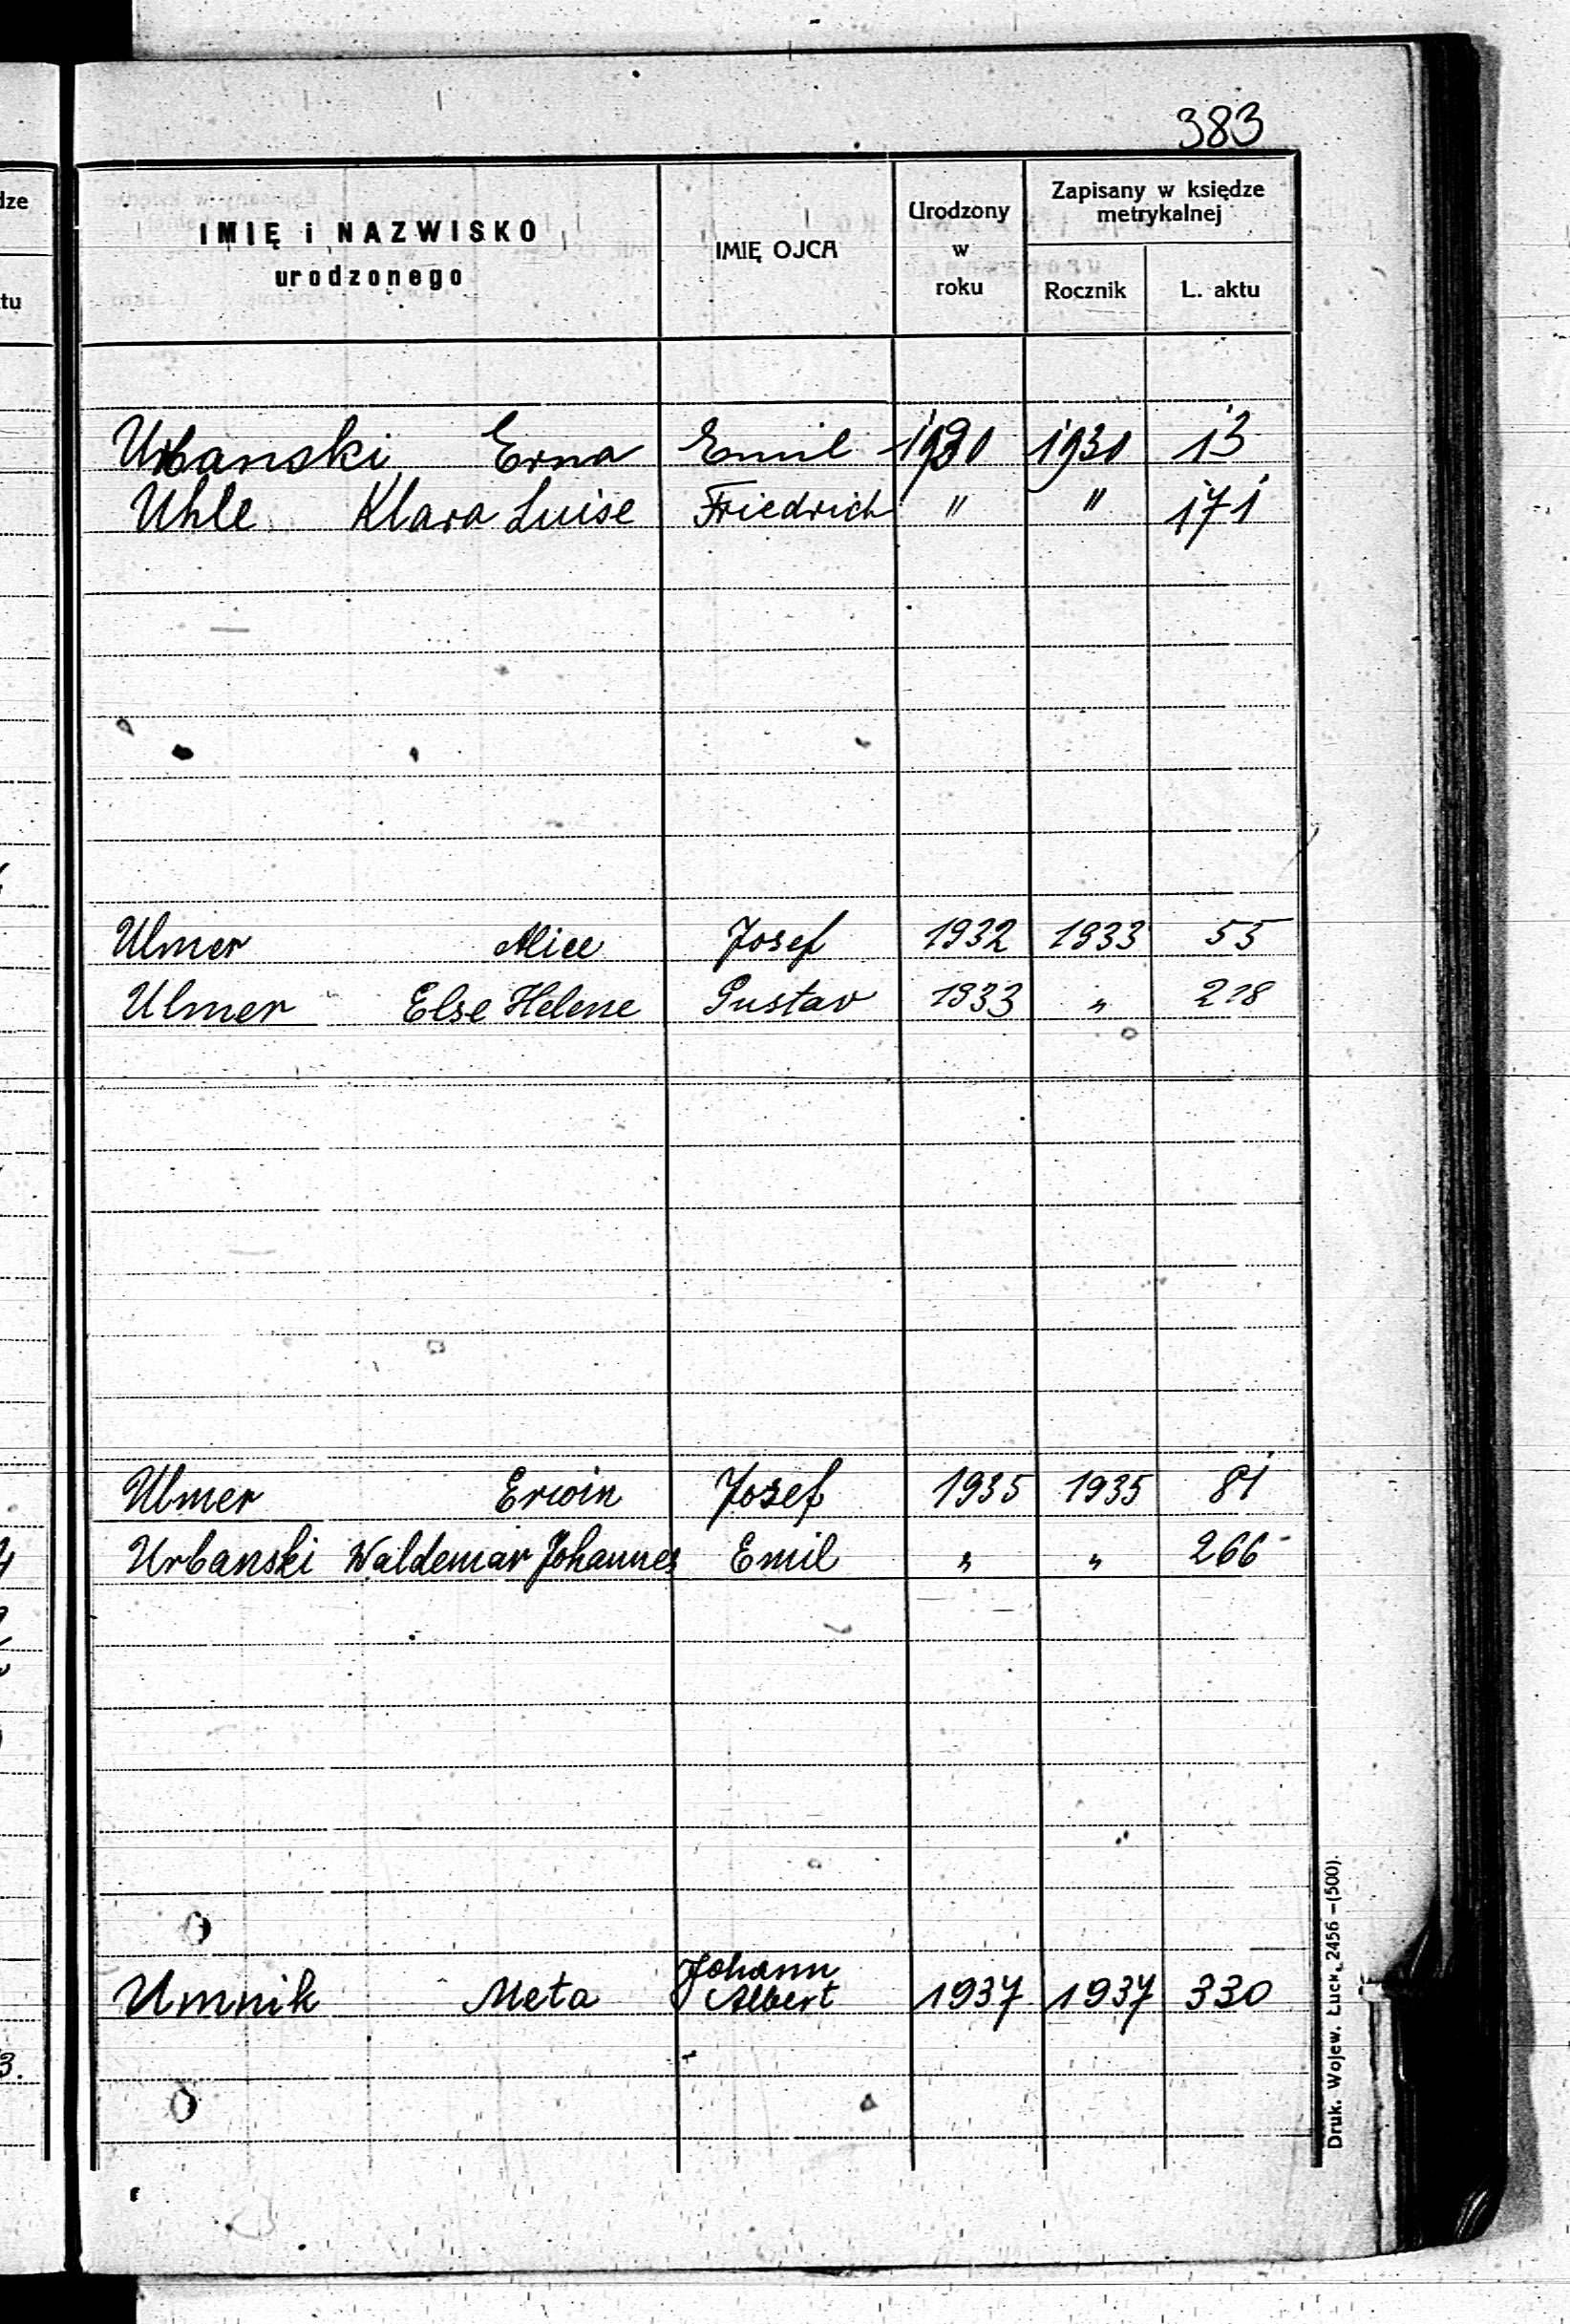 383
dze
tu
IMIĘ i NAZWISKO
urodzonego
IMIĘ OJCA
Urodzony
w
roku
Zapisany w księdze
metrykalnej
Rocznik
L. aktu
Urbanski Erna Emil 1930 1930 13
Uhle Klara Luise Friedrich " " 171
Ulmer Alice Josef 1932 1933 55
Ulmer Else Helene Gustav 1933 " 218
Ulmer Erwin Josef 1935 1935 81
Urbanski Waldemar Johannes Emil " " 266
Umnik Meta Johann
Albert 1937 1937 330
3.
Druk. Wojew. Łuck, 2456 –(500).